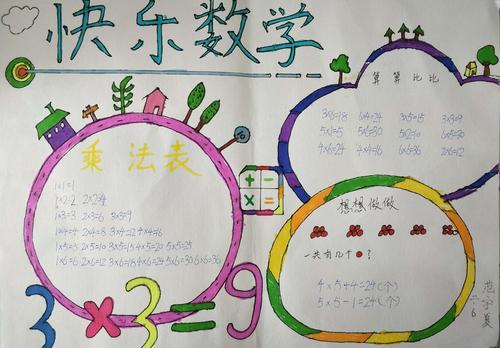 快乐数学
乘法表
1×1=1
1×2=2 2×2=4
1×3=3 2×3=6 3×3=9
1×4=4 2×4=8 3×4=12 4×4=16
1×5=5 2×5=10 3×5=15 4×5=20 5×5=25
1×6=6 2×6=12 3×6=18 4×6=24 5×6=30 6×6=36
3×3=9
算算比比
3×6=18 6×4=24 3×5=15 3×3=9
5×1=5 5×6=30 5×2=10 6×5=30
4×6=24 4×4=16 6×6=36 2×6=12
+ -
× =
想想做做
一共有几个?
4×5+4=24(个)
5×5-1=24(个)
范宇夏
二6